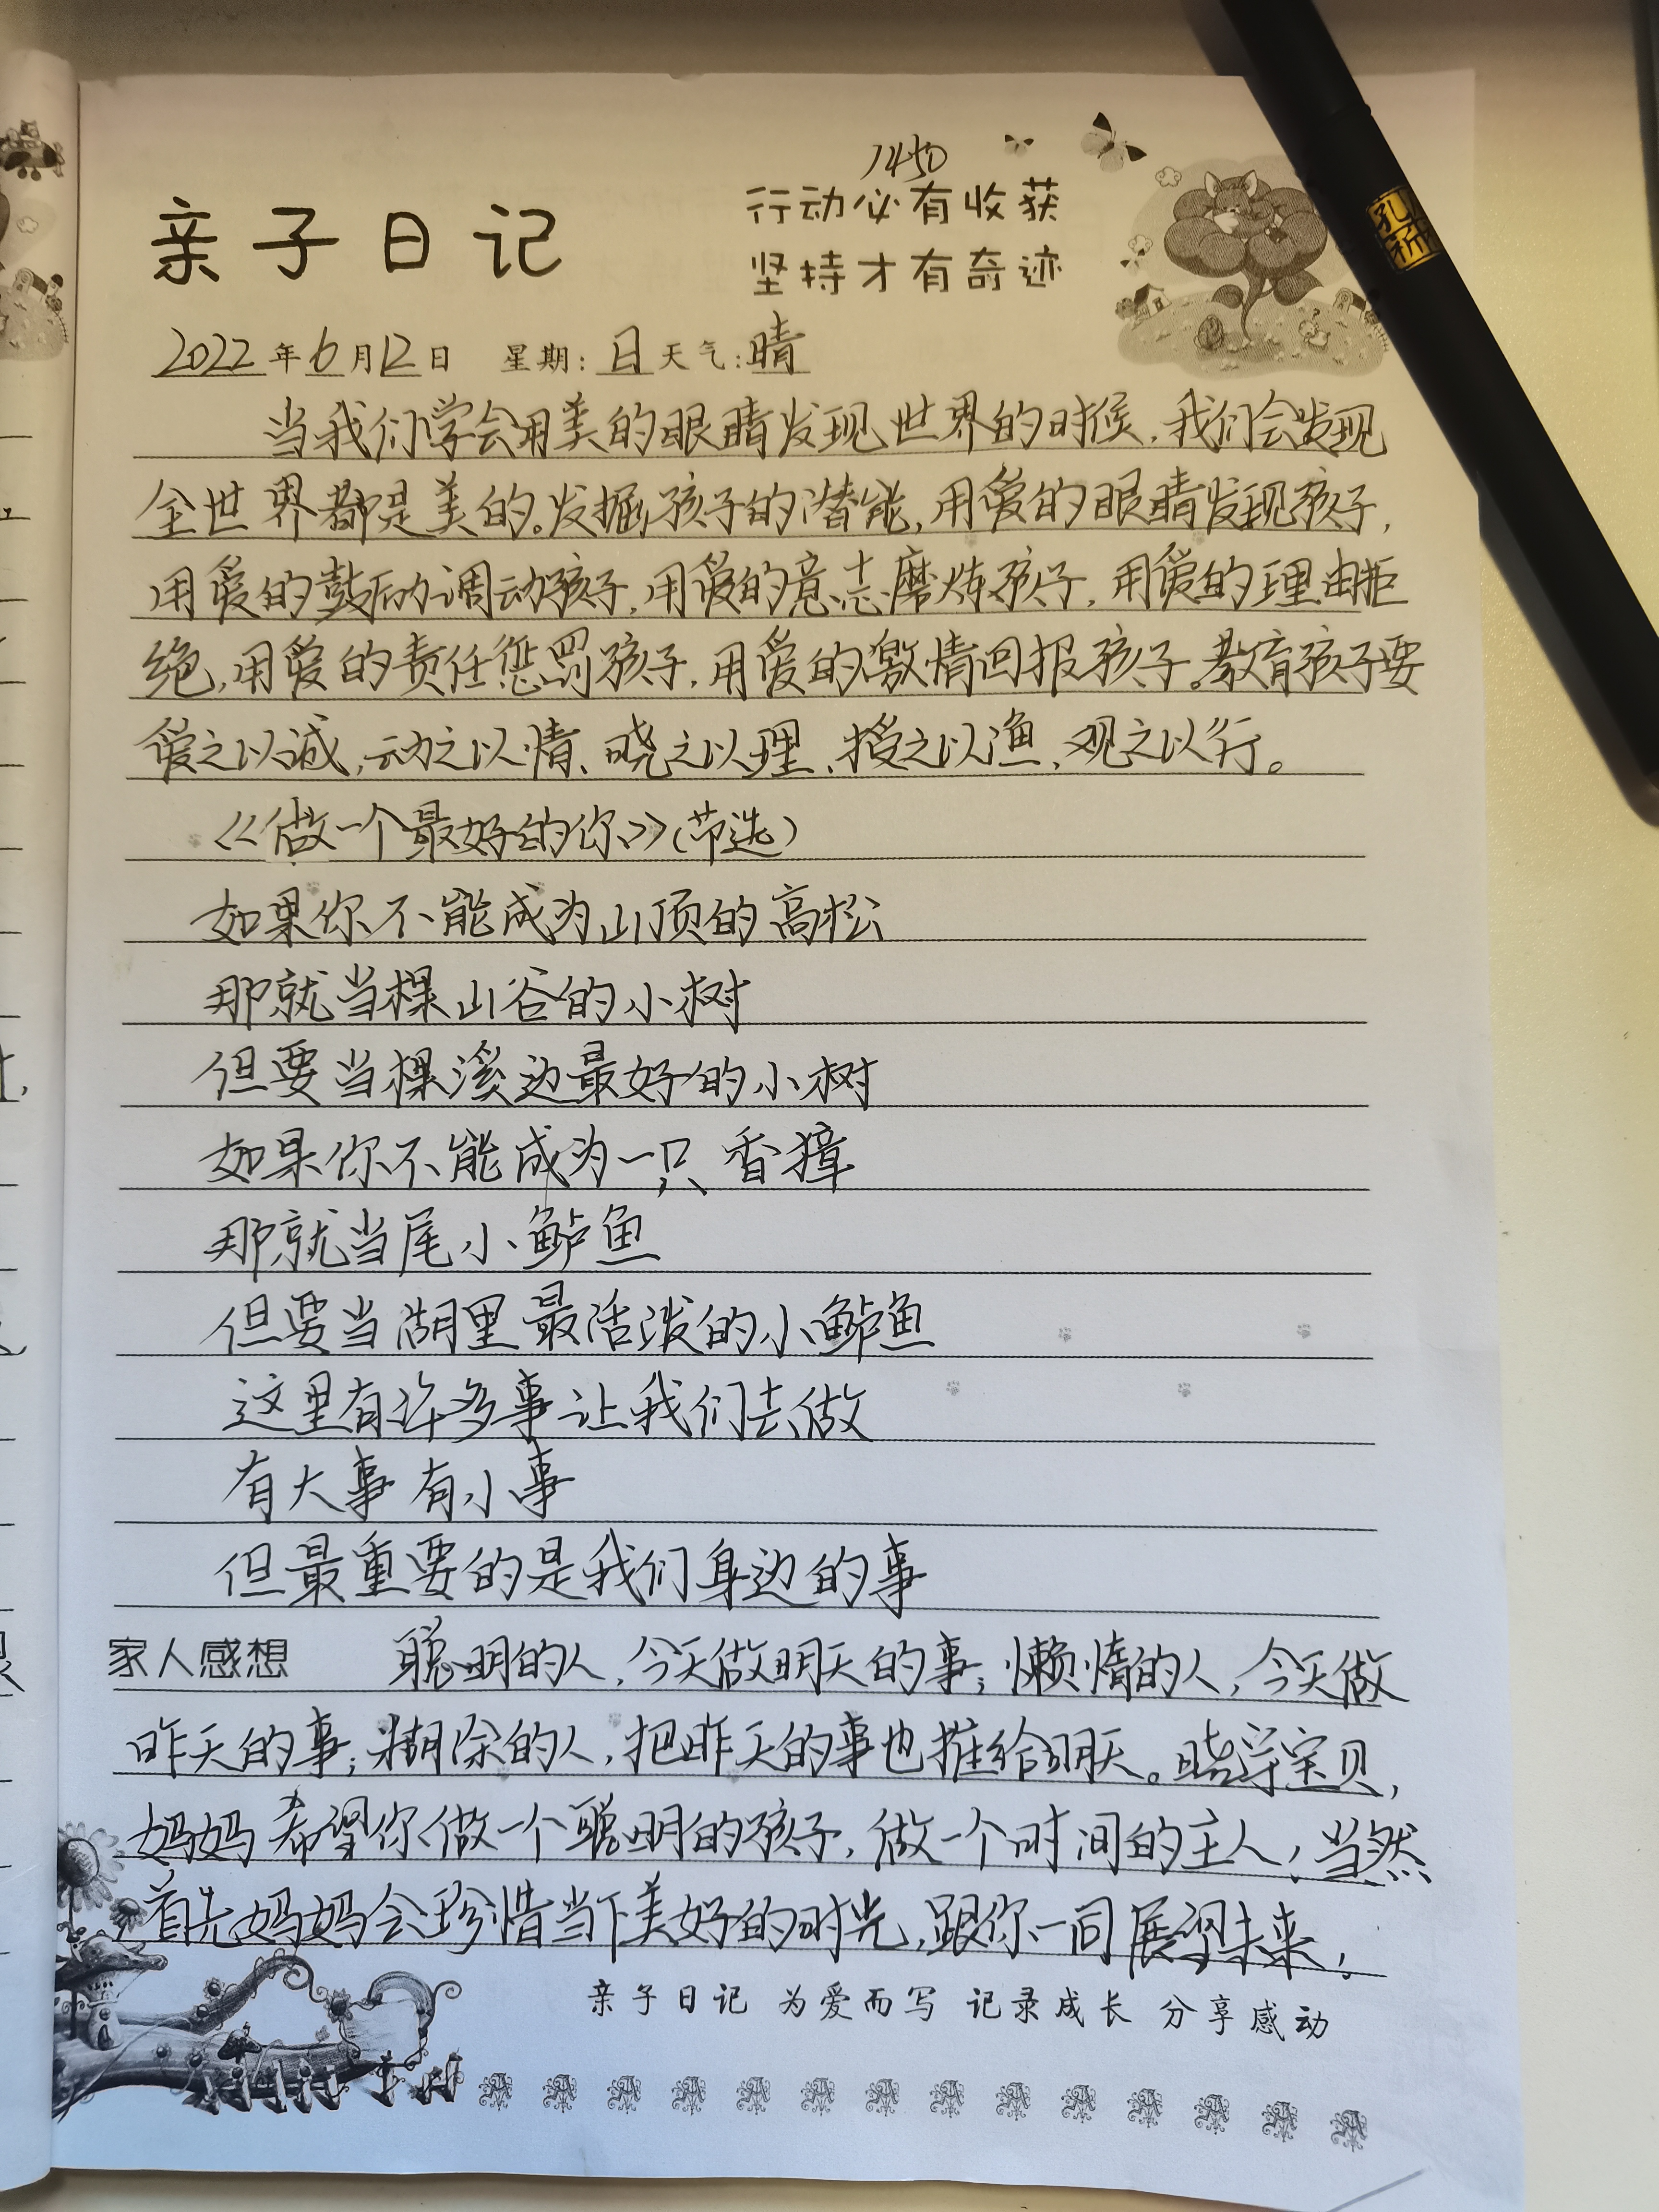 1450
亲子日记
行动必有收获
坚持才有奇迹
2022年6月12日 星期:日 天气:晴
当我们学会用美的眼睛发现世界的时候,我们会发现
全世界都是美的。发掘孩子的潜能,用爱的眼睛发现孩子,
用爱的鼓励调动孩子,用爱的意志磨炼孩子,用爱的理由拒
绝,用爱的责任惩罚孩子,用爱的激情回报孩子。教育孩子要
爱之以诚,动之以情、晓之以理、授之以渔、观之以行。
《做一个最好的你》(节选)
如果你不能成为山顶的高松
那就当棵山谷的小树
但要当棵溪边最好的小树
如果你不能成为一只香獐
那就当尾小鲈鱼
但要当湖里最活泼的小鲈鱼
这里有许多事让我们去做
有大事 有小事
但最重要的是我们身边的事
家人感想 聪明的人,今天做明天的事;懒惰的人,今天做
昨天的事;糊涂的人,把昨天的事也推给明天。宝贝,
妈妈希望你做一个聪明的孩子,做一个时间的主人,当然
首先妈妈会珍惜当下美好的时光,跟你一同展望未来!
亲子日记 为爱而写 记录成长 分享感动